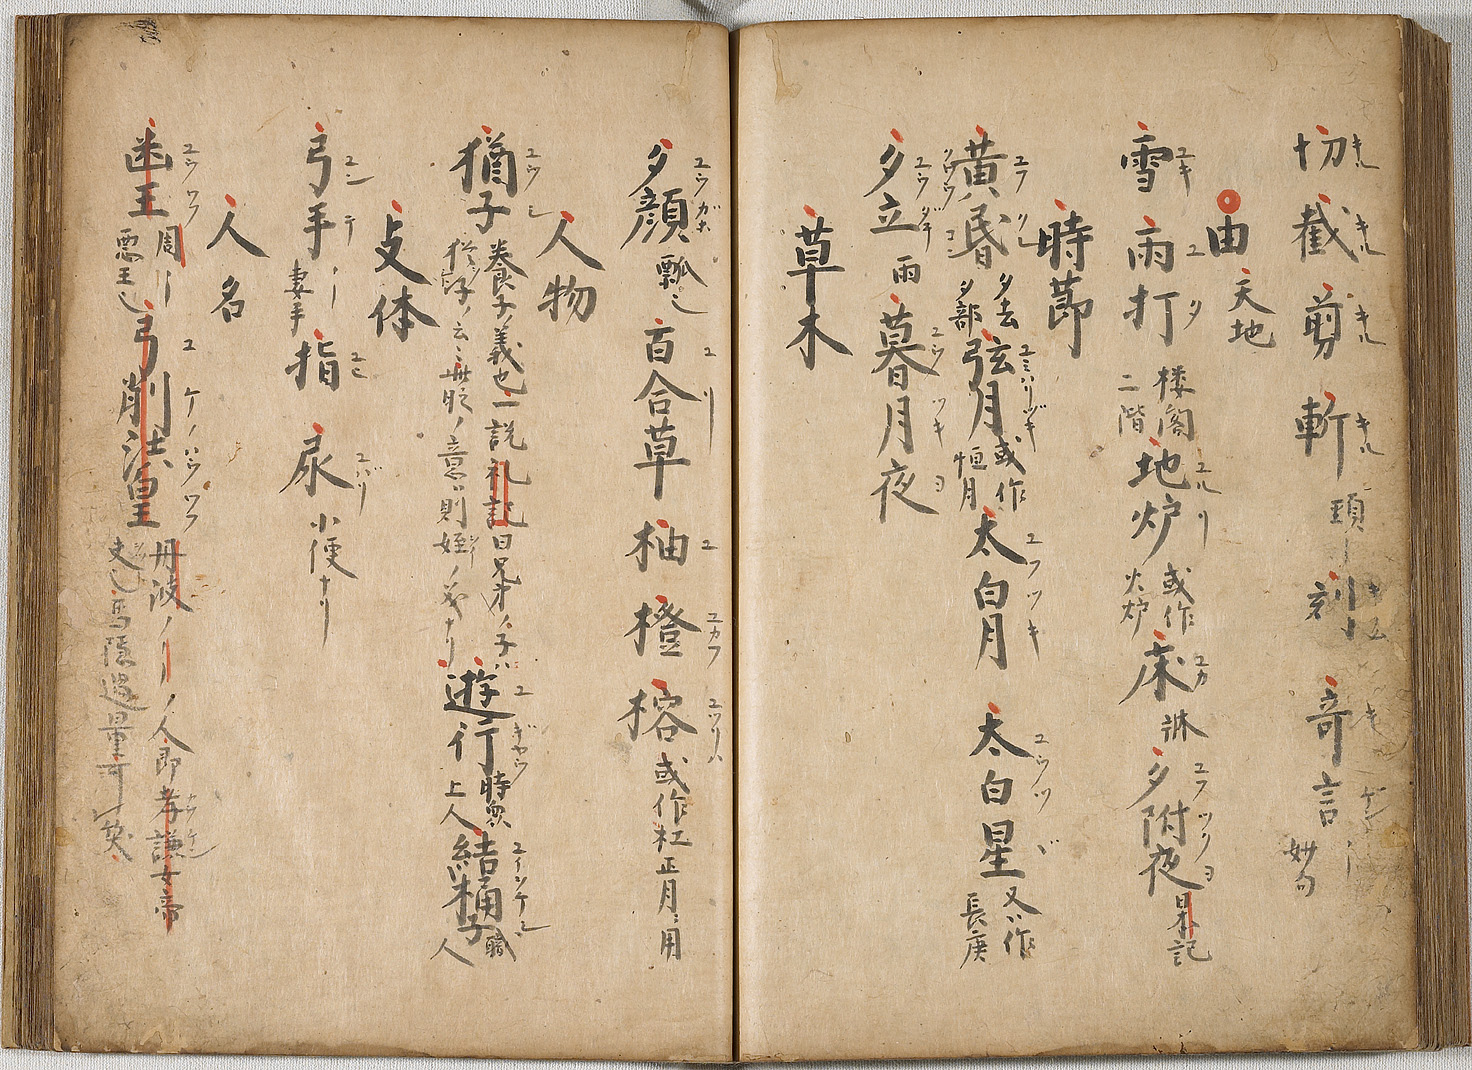 切キル 截キル 剪キル 斬キル 頭ー 刻 奇言 妙句
由 天地
雪ユキ 雨打ユタ 楼閣二階 地炉ユルリ 或作火炉 床ユカ 牀 夕附夜ユフツクヨ 日本記
時節
黄昏 夕去夕部 弦月ユミハリヅキ 或作恒月 太白月ユフツキ 太白星ユウツヅ 又作長庚
夕立ユウダチ 雨 暮月夜ユウツキヨ
草木
夕顔ユウガホ 瓢也 百合草ユリ 柚ユ 橙ユカウ 榕ユツリハ 或作杠正月用
人物
猶子ユウシ 養子ノ義也一説礼記曰兄弟ノ子ハ猶子ノ云々無服ノ意則姪ノ義ナリ 遊行ユギヤウ 時衆上人 結桶子 職人
支体
弓手ユンテ 妻手 指ユビ 尿ユバリ 小便ナリ
人名
幽王ユウワウ 周ー悪王也 弓削法皇ユケノハウワウ 丹波ノーノ人即孝謙女帝 馬陰過量可笑